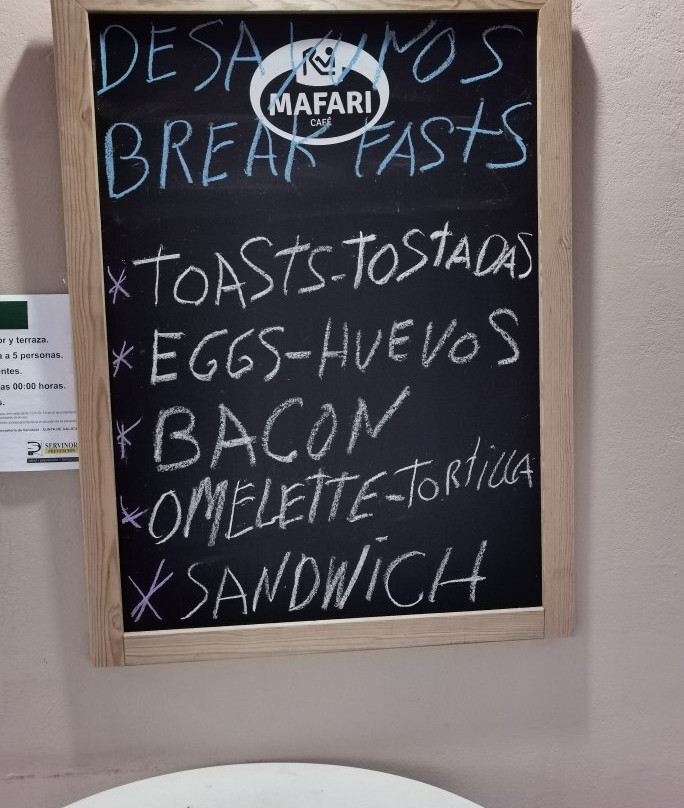 DESAYUNOS
MAFARI
CAFÉ
BREAK FASTS
* TOASTS-TOSTADAS
* EGGS-HUEVOS
* BACON
* OMELETTE-TORTILLA
* SANDWICH
or y terraza.
a a 5 personas.
entes.
as 00:00 horas.
s.
SERVINOR
PREVENCIÓN